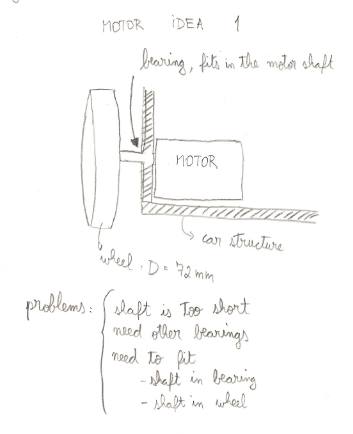 MOTOR iDEA 1
bearing, fits in the motor shaft
MOTOR
car structure
wheel. D = 72 mm
problems:
shaft is too short
need other bearings
need to fit
- shaft in bearing
- shaft in wheel